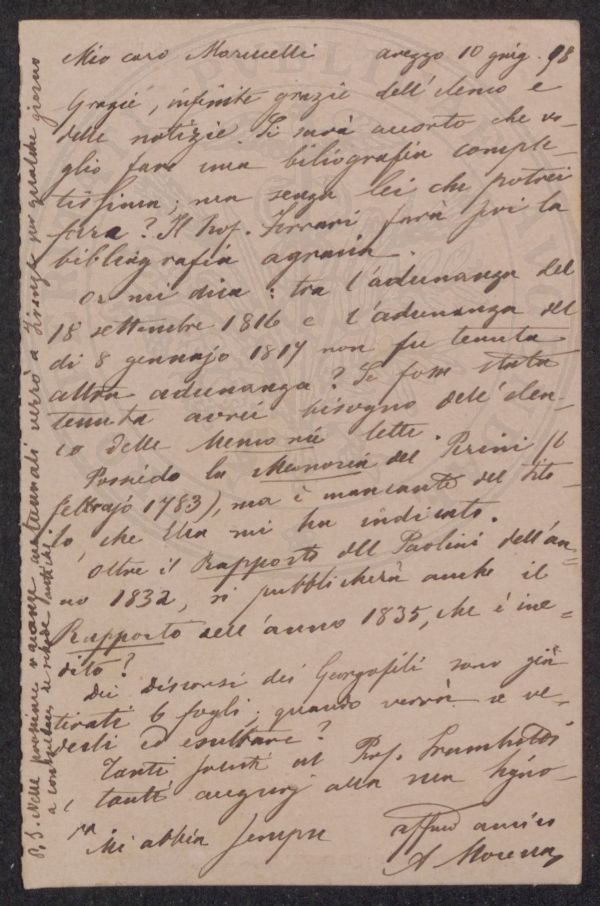 Mio caro Marucelli arezzo 10 giug. 98
Grazie, infinite grazie dell'elenco e
delle notizie. Si sarà accorto che vo-
glio fare una bibliografia comple-
tissima; ma senza lei che potrei
fare? Il Prof. Ferrari farà poi la
bibliografia agraria.
Or mi dica: tra l'adunanza del
18 settembre 1816 e l'adunanza del
di 8 gennajo 1817 non fu tenuta
altra adunanza? Se fosse stata
tenuta avrei bisogno dell'elen-
co delle Memorie lette.
Possiedo la Memoria del Perini (6
febbrajo 1783), ma è mancante del tito-
lo, che Ella mi ha indicato.
Oltre il Rapporto del Paolini dell'an-
no 1832, si pubblicherà anche il
Rapporto dell'anno 1835, che è ine-
dito?
Dei discorsi dei Georgofili sono già
tirati 6 fogli; quando verrà a ve-
derli ed
Tanti saluti al Prof.
e tanti augurj alla sua Signo-
ra
Mi abbia sempre affmo amico
A
P. S. Nelle prossime vacanze autunnali verrò a Firenze per qualche giorno
a consultare le schede